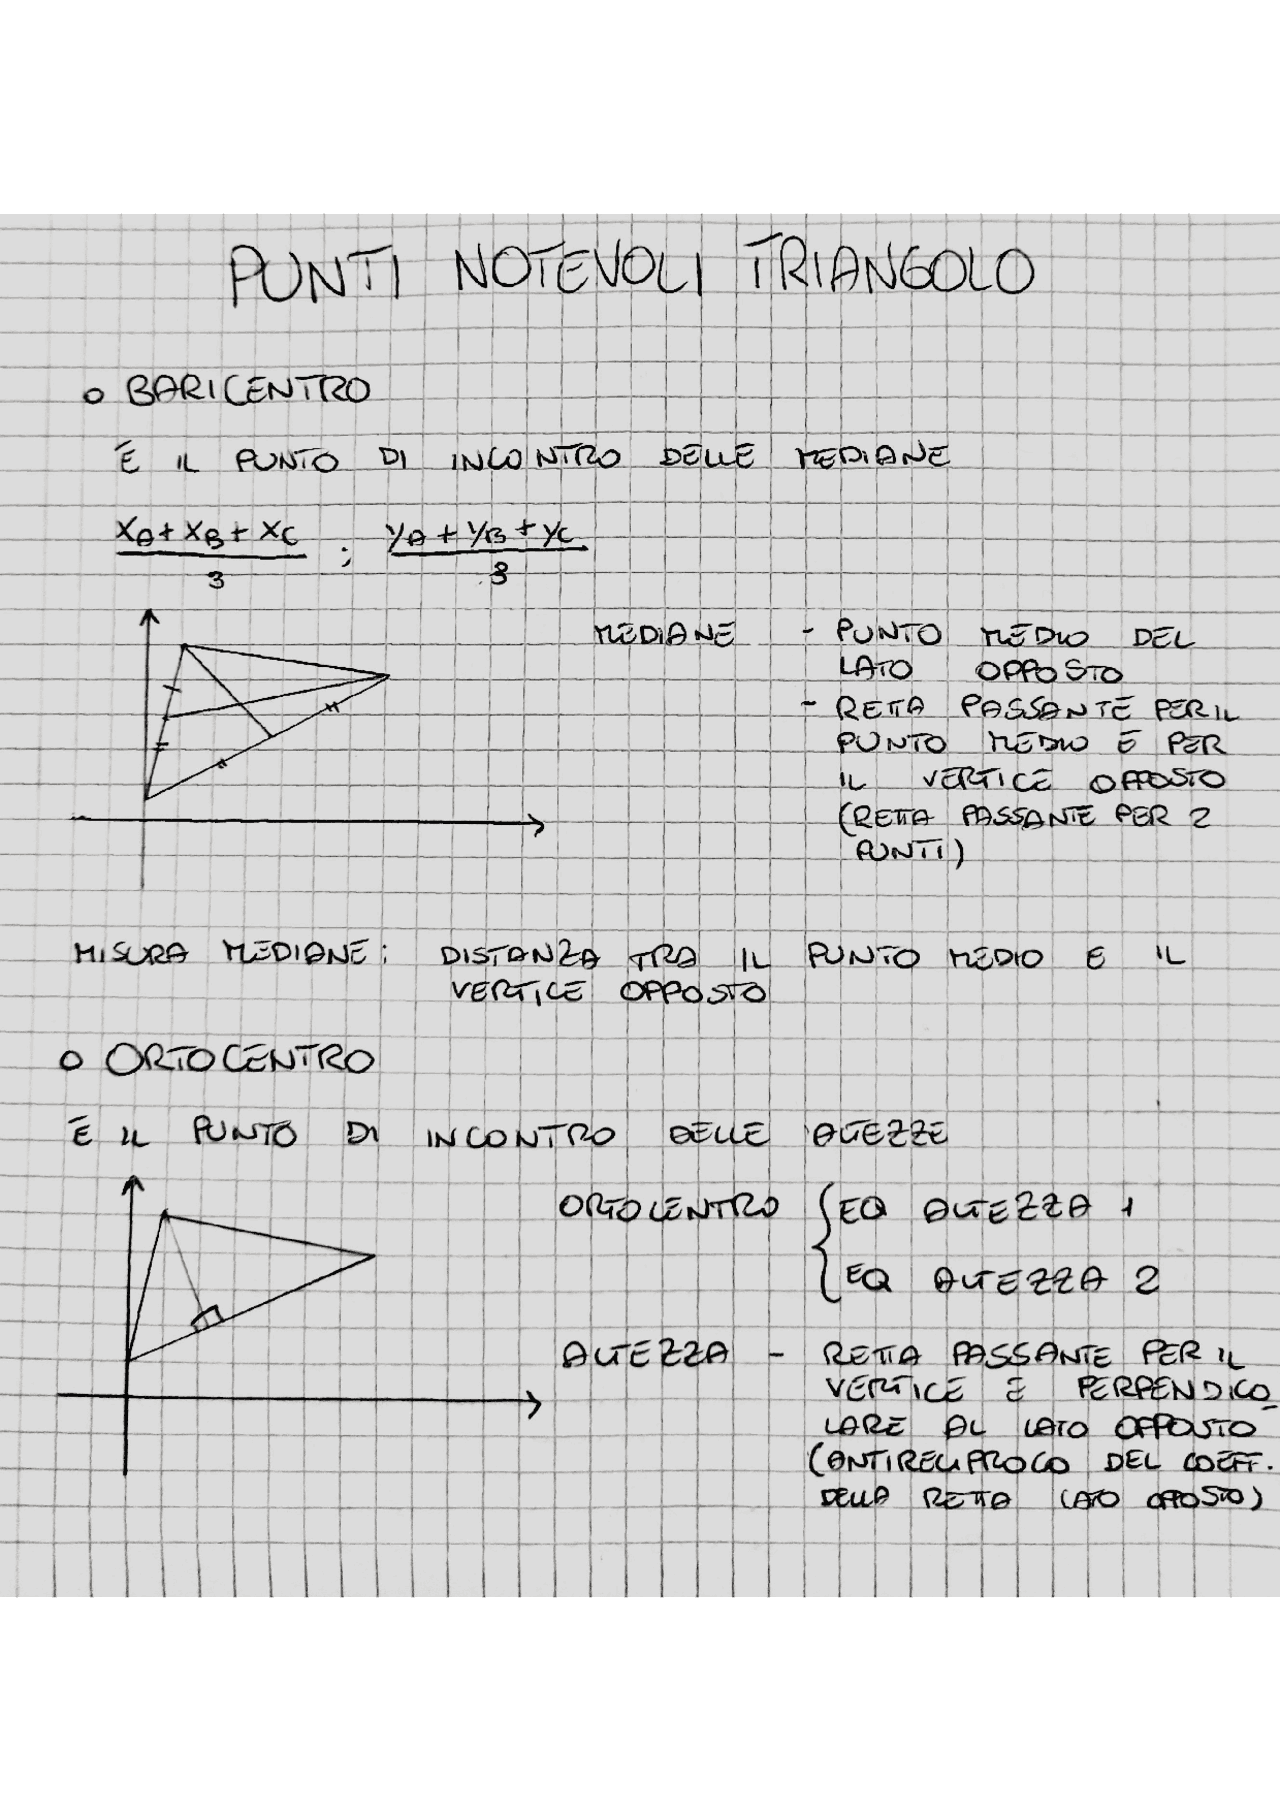 PUNTI NOTEVOLI TRIANGOLO
o BARICENTRO
È IL PUNTO DI INCONTRO DELLE MEDIANE
xA + xB + xC / 3 ; yA + yB + yC / 3
MEDIANE - PUNTO MEDIO DEL
LATO OPPOSTO
- RETTA PASSANTE PER IL
PUNTO MEDIO E PER
IL VERTICE OPPOSTO
(RETTA PASSANTE PER 2
PUNTI)
MISURA MEDIANE: DISTANZA TRA IL PUNTO MEDIO E IL
VERTICE OPPOSTO
o ORTOCENTRO
È IL PUNTO DI INCONTRO DELLE ALTEZZE
ORTOCENTRO { EQ ALTEZZA 1
EQ ALTEZZA 2
ALTEZZA - RETTA PASSANTE PER IL
VERTICE E PERPENDICO_
LARE AL LATO OPPOSTO
(ANTIRECIPROCO DEL COEFF.
DELLA RETTA LATO OPPOSTO)